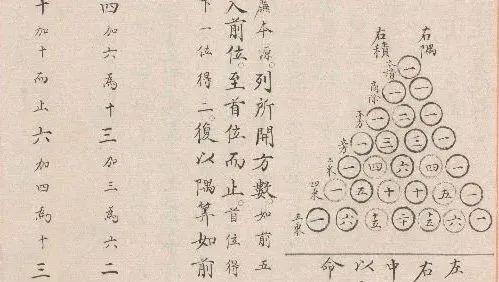 右隅
右積
本積
一
商除
一 一
平方
一 二 一
方
一 三 三 一
三乘
一 四 六 四 一
四乘
一 五 十 十 五 一
五乘
一 六 十五 二十 十五 六 一
左
右
中
以
命
廉本源。列所開方數。如前五
入前位。至首位而止。首位得
下一位得二。復以隅算如前
四加六為十三加三為六二
十加十而止六加四為十三